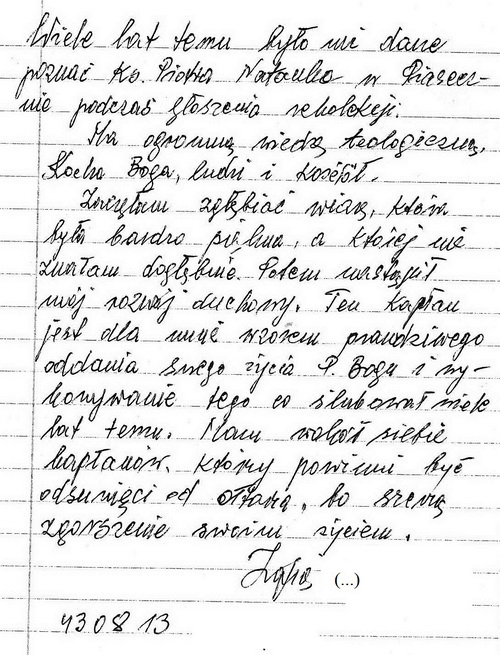 Wiele lat temu było mi dane
poznać Ks. Piotra Natanka w Piasecz-
nie podczas głoszenia rekolekcji.
Ma ogromną wiedzę teologiczną,
Kocha Boga, ludzi i kościół.
Zaczęłam zgłębiać wiarę, która
była bardzo piękna, a której nie
znałam dogłębnie. Potem nastąpił
mój rozwój duchowy. Ten Kapłan
jest dla mnie wzorem prawdziwego
oddania swego życia P. Bogu i wy-
konywanie tego co ślubował wiele
lat temu. Mam wokół siebie
kapłanów, którzy powinni być
odsunięci od ołtarza, bo szerzą
zgorszenie swoim życiem.
(...)
430813